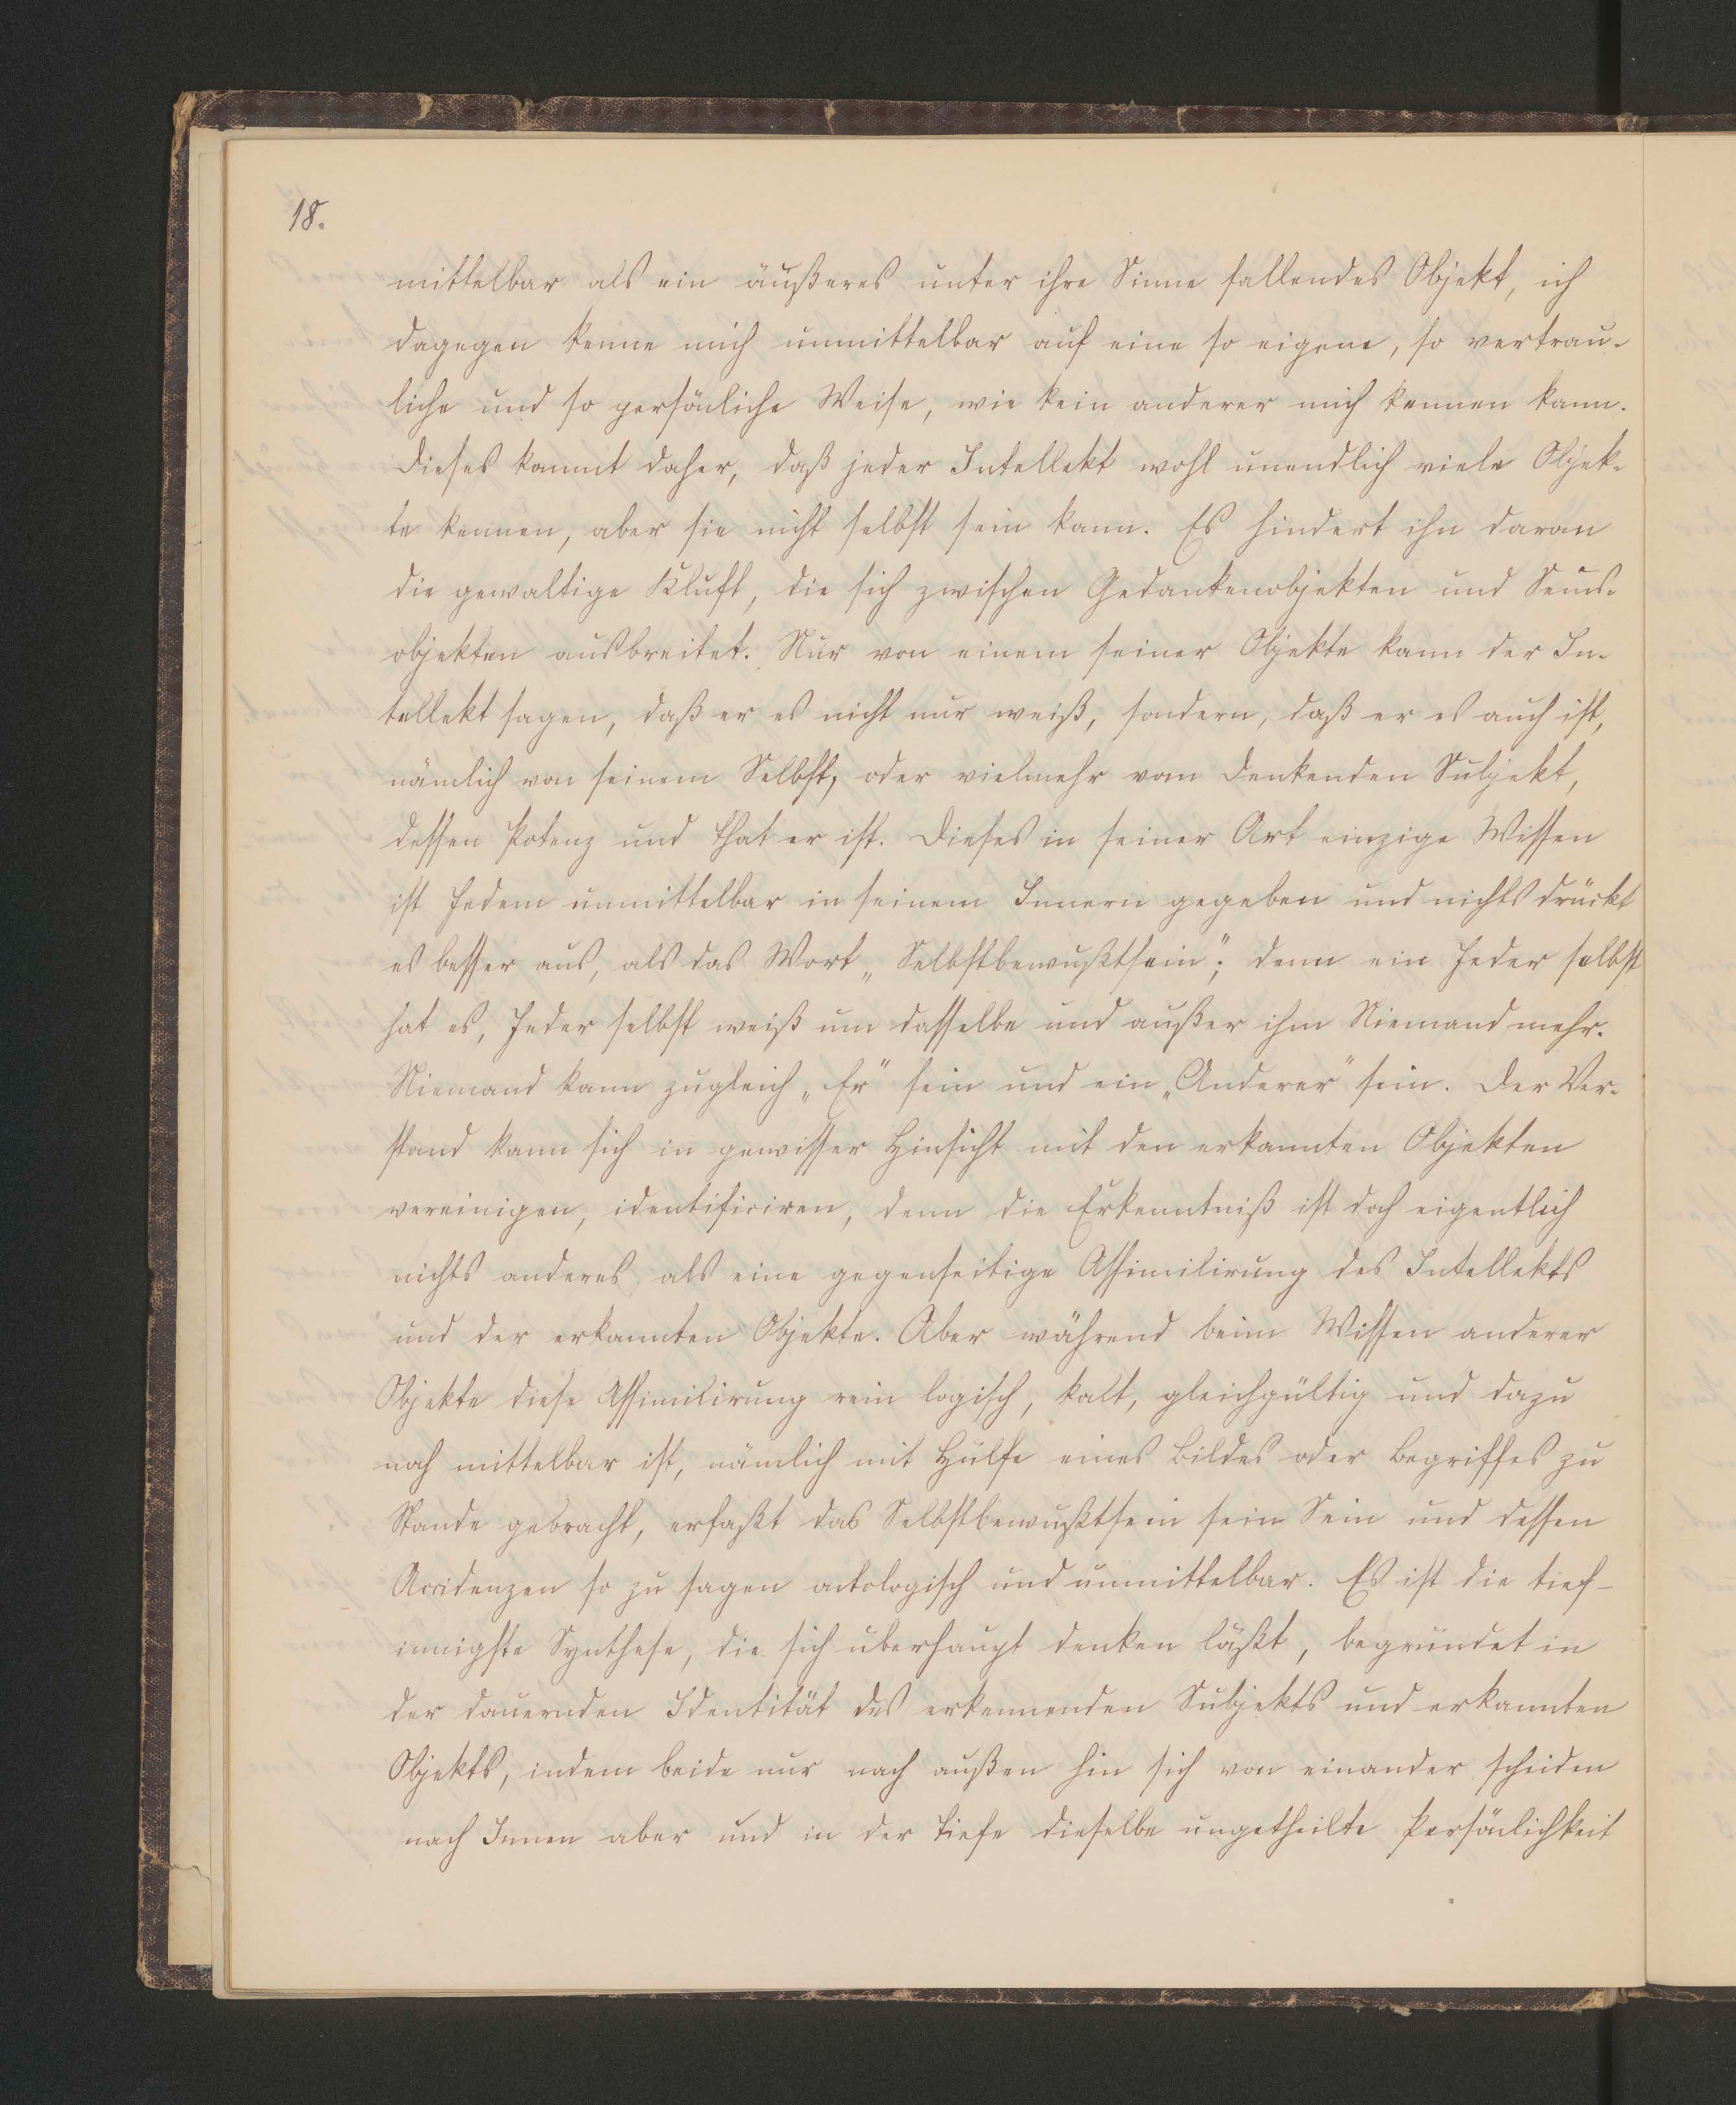 18.
mittelbar als ein äußeres unter ihre Sinne fallendes Objekt, ich
dagegen kenne mich unmittelbar auf eine so eigene, so vertrau-
liche und so persönliche Weise, wie kein anderer mich kennen kann.
Dieses kommt daher, daß jeder Intellekt wohl unendlich viele Objek-
te kennen, aber sie nicht selbst sein kann. Es hindert ihn daran
die gewaltige Kluft, die sich zwischen Gedankenobjekten und Seins-
objekten ausbreitet. Nur von einem seiner Objekte kann der In-
tellekt sagen, daß er es nicht nur weiß, sondern, daß er es auch ist,
nämlich von seinem Selbst, oder vielmehr vom denkenden Subjekt,
dessen Potenz und That er ist. Dieses in seiner Art einzige Wissen
ist Jedem unmittelbar in seinem Innern gegeben und nichts drückt
es besser aus, als das Wort „Selbstbewußtsein“; denn ein Jeder selbst
hat es, Jeder selbst weiß um dasselbe und außer ihm Niemand mehr.
Niemand kann zugleich „Er“ sein und ein „Anderer“ sein. Der Ver-
stand kann sich in gewisser Hinsicht mit den erkannten Objekten
vereinigen, identificiren, denn die Erkenntniß ist doch eigentlich
nichts anderes, als eine gegenseitige Assimilirung des Intellekts
und der erkannten Objekte. Aber während beim Wissen anderer
Objekte diese Assimilirung rein logisch, kalt, gleichgültig und dazu
noch mittelbar ist, nämlich mit Hülfe eines Bildes oder Begriffes zu
Stande gebracht, erfaßt das Selbstbewußtsein sein Sein und dessen
Accidenzen so zu sagen ontologisch und unmittelbar. Es ist die tief-
innigste Synthese, die sich überhaupt denken läßt, begründet in
der dauernden Identität des erkennenden Subjekts und erkannten
Objekts, indem beide nur nach außen hin sich von einander scheiden
nach Innen aber und in der Tiefe dieselbe ungetheilte Persönlichkeit